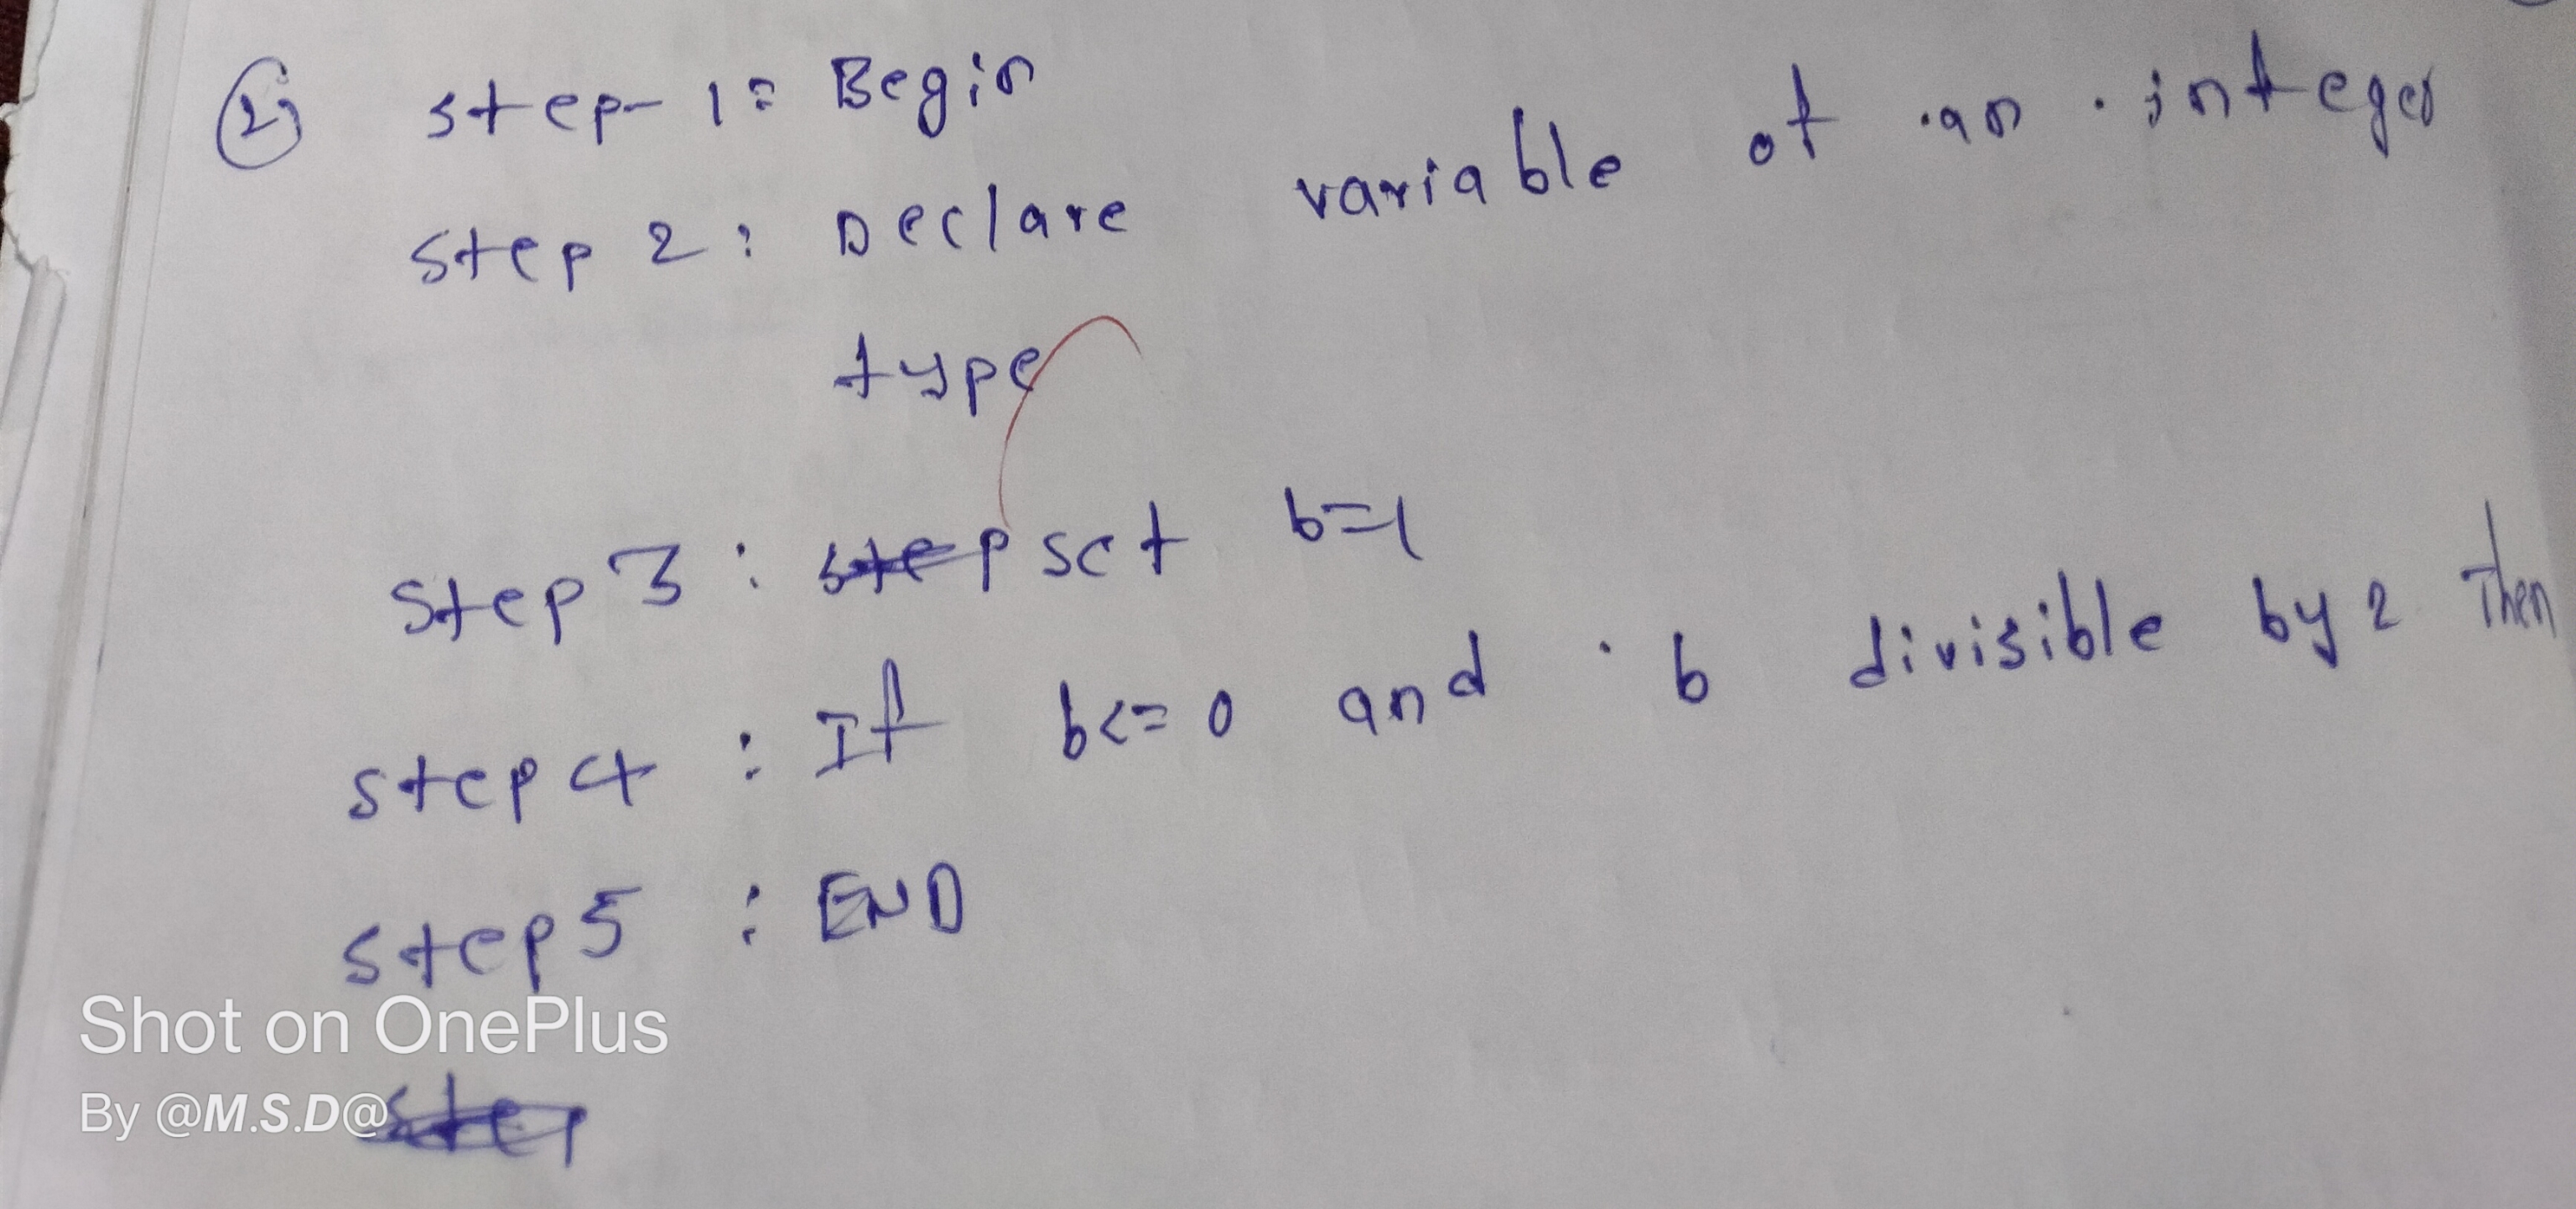 2) step-1: Begin
step 2: Declare variable of an integer
type
step 3: step set b=1
step 4: If b<=0 and b divisible by 2 Then
step 5: END
Shot on OnePlus
By @M.S.D@
step